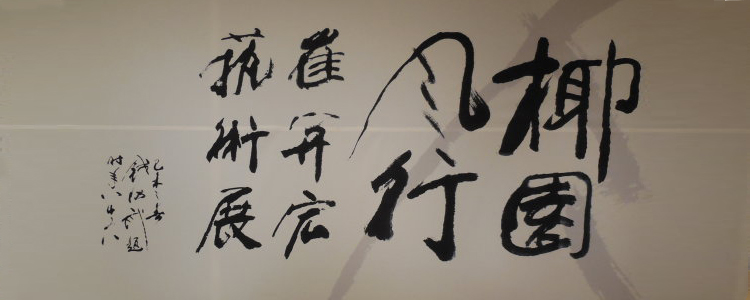 椰園
风行
崔开宏
藝術展
乙未之春
錢紹武題
时年八十八